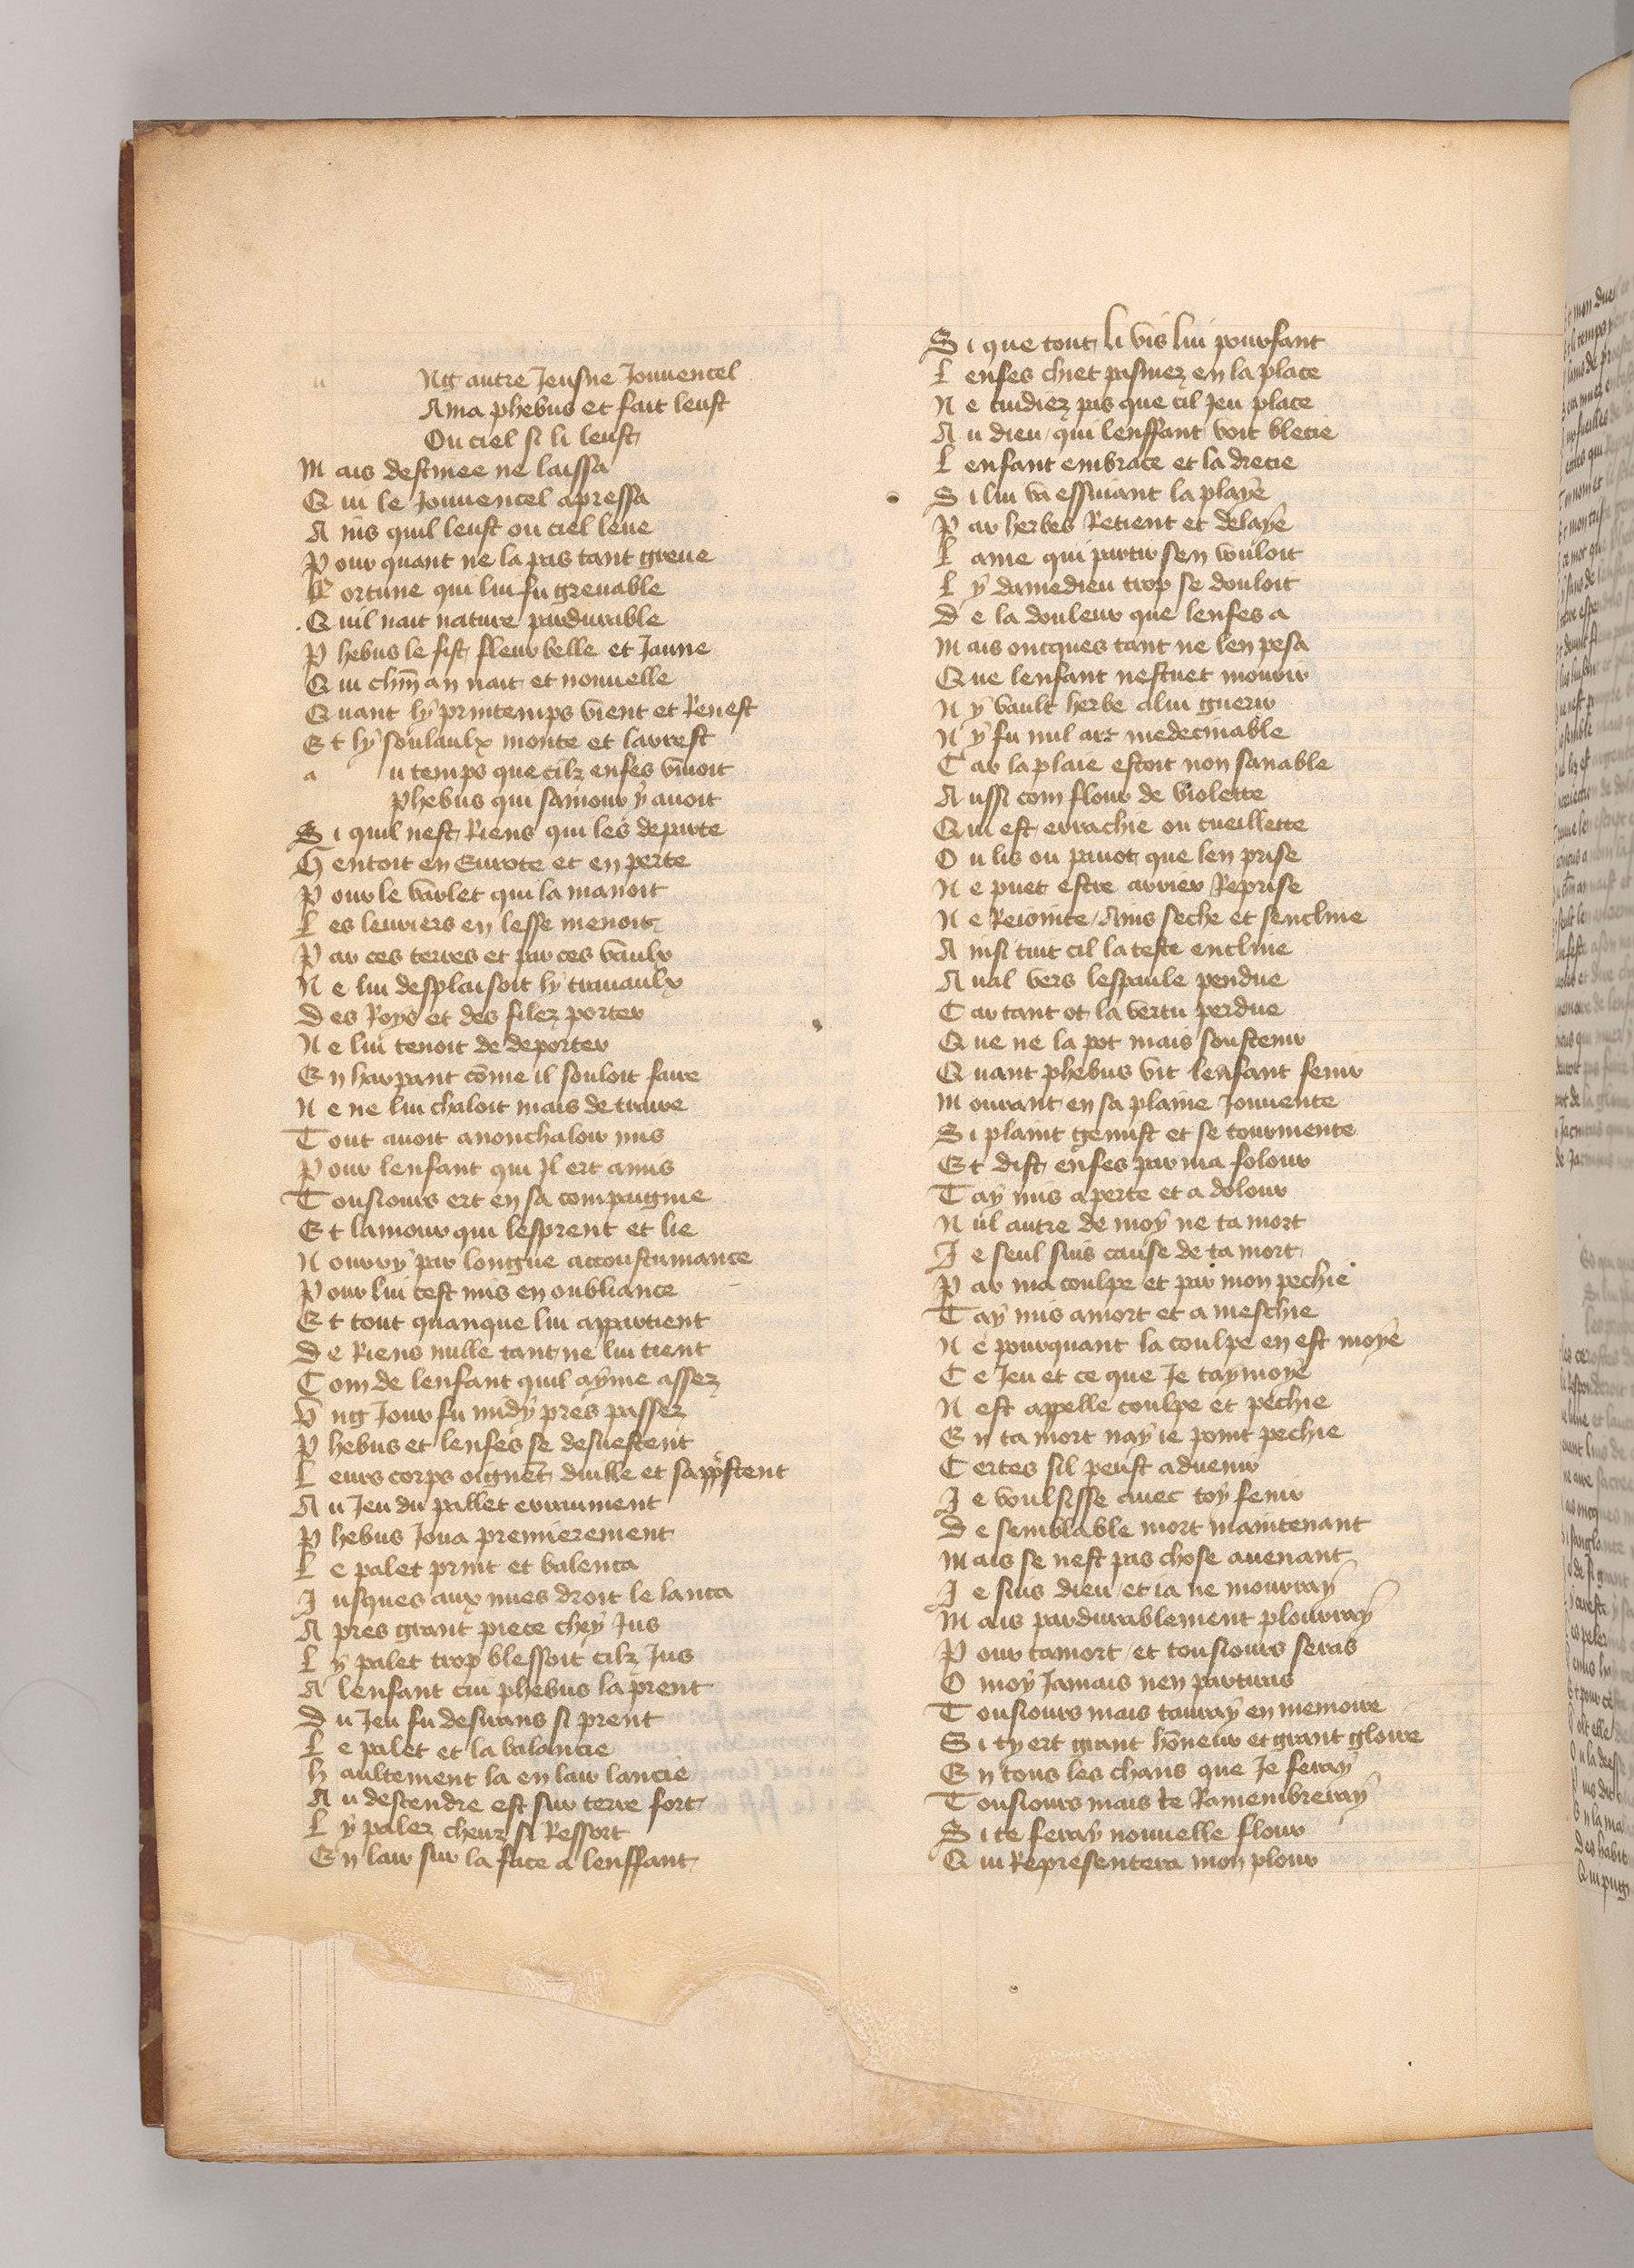 u Ng autre Jeusne Jouuencel
Ama phebus et fait leust
Ou ciel si li leust
M ais destinee ne laissa
Q ui le Jouuencel apressa
A ins quil leust ou ciel leue
P our quant ne la pas tant greue
F ortune qui lui fu greuable
Q uil nait nature pardurable
P hebus le fist fleur belle et Jaune
Q ui chm̄ an nait et nouuelle
Q uant lÿ printemps vient et Renest
E t lÿ soulaulx monte et larrest
a u temps que cilz enfes viuoit
Phebus qui samour ÿ auoit
S i quil nest Riens qui les departe
H entoit en Eurote et en perte
P our le varlet qui la manoit
L es leuriers en lesse menoit
P ar ces terres et par ces vaulx
N e lui desplaisoit lÿ trauaulx
D es Roys et des filez porter
N e lui tenoit de deporter
E n harpant cōme il souloit faire
N e ne lui chaloit mais de traire
T out auoit anonchaloir mis
P our lenfant qui Jl ert amis
T ousiours ert en sa compaignie
E t lamour qui lesprent et lie
N ourrÿ par longue accoustumance
P our lui cest mis en oubliance
E t tout quanque lui appartient
D e Riens nulle tant ne lui tient
C om de lenfant quil aÿme assez
V ng Jour fu midÿ pres passez
P hebus et lenfes se desuestent
L eurs corps oignent duille et sapp̄stent
A u Jeu du pallet erraument
P hebus Joua premierement
L e palet print et balenca
J usques aux nues droit le lanca
A pres grant piece cheÿ Jus
L ÿ palet trop blessoit cilz Jus
A lenfant cui phebus la prent
D u Jeu fu desirans si prent
L e palet et la balancie
H aultement la en lair lancie
A u descendre est sur terre fort
L ÿ palez cheuz si Ressort
E n lair sur la face a lenffant
S i que tout li vis lui pourfant
L enfes chiet pasmez en la place
N e cuidiez pas que cil Jeu place
A u dieu qui lenffant voit blecie
L enfant embrace et la drecie
S i lui va essuiant la plaÿe
P ar herbes Retient et delaÿe
L ame qui partir sen vouloit
L ÿ damedieu trop se douloit
D e la douleur que lenfes a
M ais oncques tant ne len pesa
Q ue lenfant nestuet mourir
N ÿ vault herbe a lui guerir
N ÿ fu nul art medecinable
C ar la plaie estoit non sanable
A ussi com flour de violette
Q ui est errachie ou cueillette
O u lis ou pauot que len prise
N e puet estre arrier Reprise
N e Reiointe / Ains seche et sencline
A insi tint cil la teste encline
A ual vers lespaule pendue
C ar tant ot la vertu perdue
Q ue ne la pot mais soustenir
Q uant phebus vit lenfant fenir
M ourant en sa plaine Jouuente
S i plaint gemist et se tourmente
E t dist enfes par ma folour
T aÿ mis a perte et a dolour
N ul autre de moÿ ne ta mort
J e seul suis cause de ta mort
P ar ma coulpe et par mon pechie
T aÿ mis a mort et a meschie
N e pourquant la coulpe en est moÿe
C e Jeu et ce que Je taÿmoÿe
N est appelle coulpe et pechie
E n ta mort naÿ ie point pechie
C ertes sil peust aduenir
J e voulsisse auec toÿ fenir
D e semblable mort maintenant
M ais se nest pas chose auenant
J e suis dieu / et ia ne mourraÿ
M ais pardurablement plourraÿ
P our ta mort / et tousiours seras
O moÿ Jamais nen partiras
T ousiours mais tauraÿ en memoire
S i tÿ ert grant hōneur et grant gloire
E n tous les chans que Je feraÿ
T ousiours mais te Ramembreraÿ
S i te feraÿ nouuelle flour
Q ui Representera mon plour